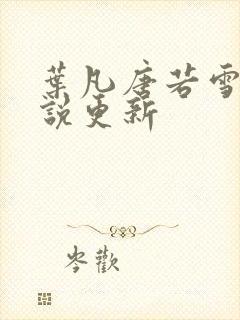 葉凡唐若雪
說更新
岑歡